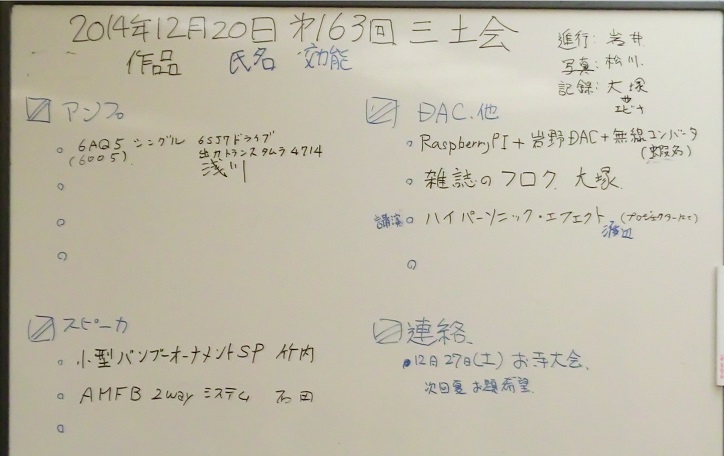 2014年12月20日 第163回 三土会
作品 氏名 効能
進行: 岩井
写真: 松川
記録: 大塚
エビナ
アンプ
6AQ5 シングル 6SJ7ドライブ
(6005) 出力トランスタムラ4714
浅川
DAC.他
RaspberryPI+岩野DAC+無線コンバータ
(蝦名)
雑誌のフロク 大塚
講演 ハイパーソニック・エフェクト (プロジェクターにて)
渡辺
スピーカ
小型バンブーオーナメントSP 竹内
AMFB 2way システム 石田
連絡
12月27日(土) お寺大会
次回夏 お題希望